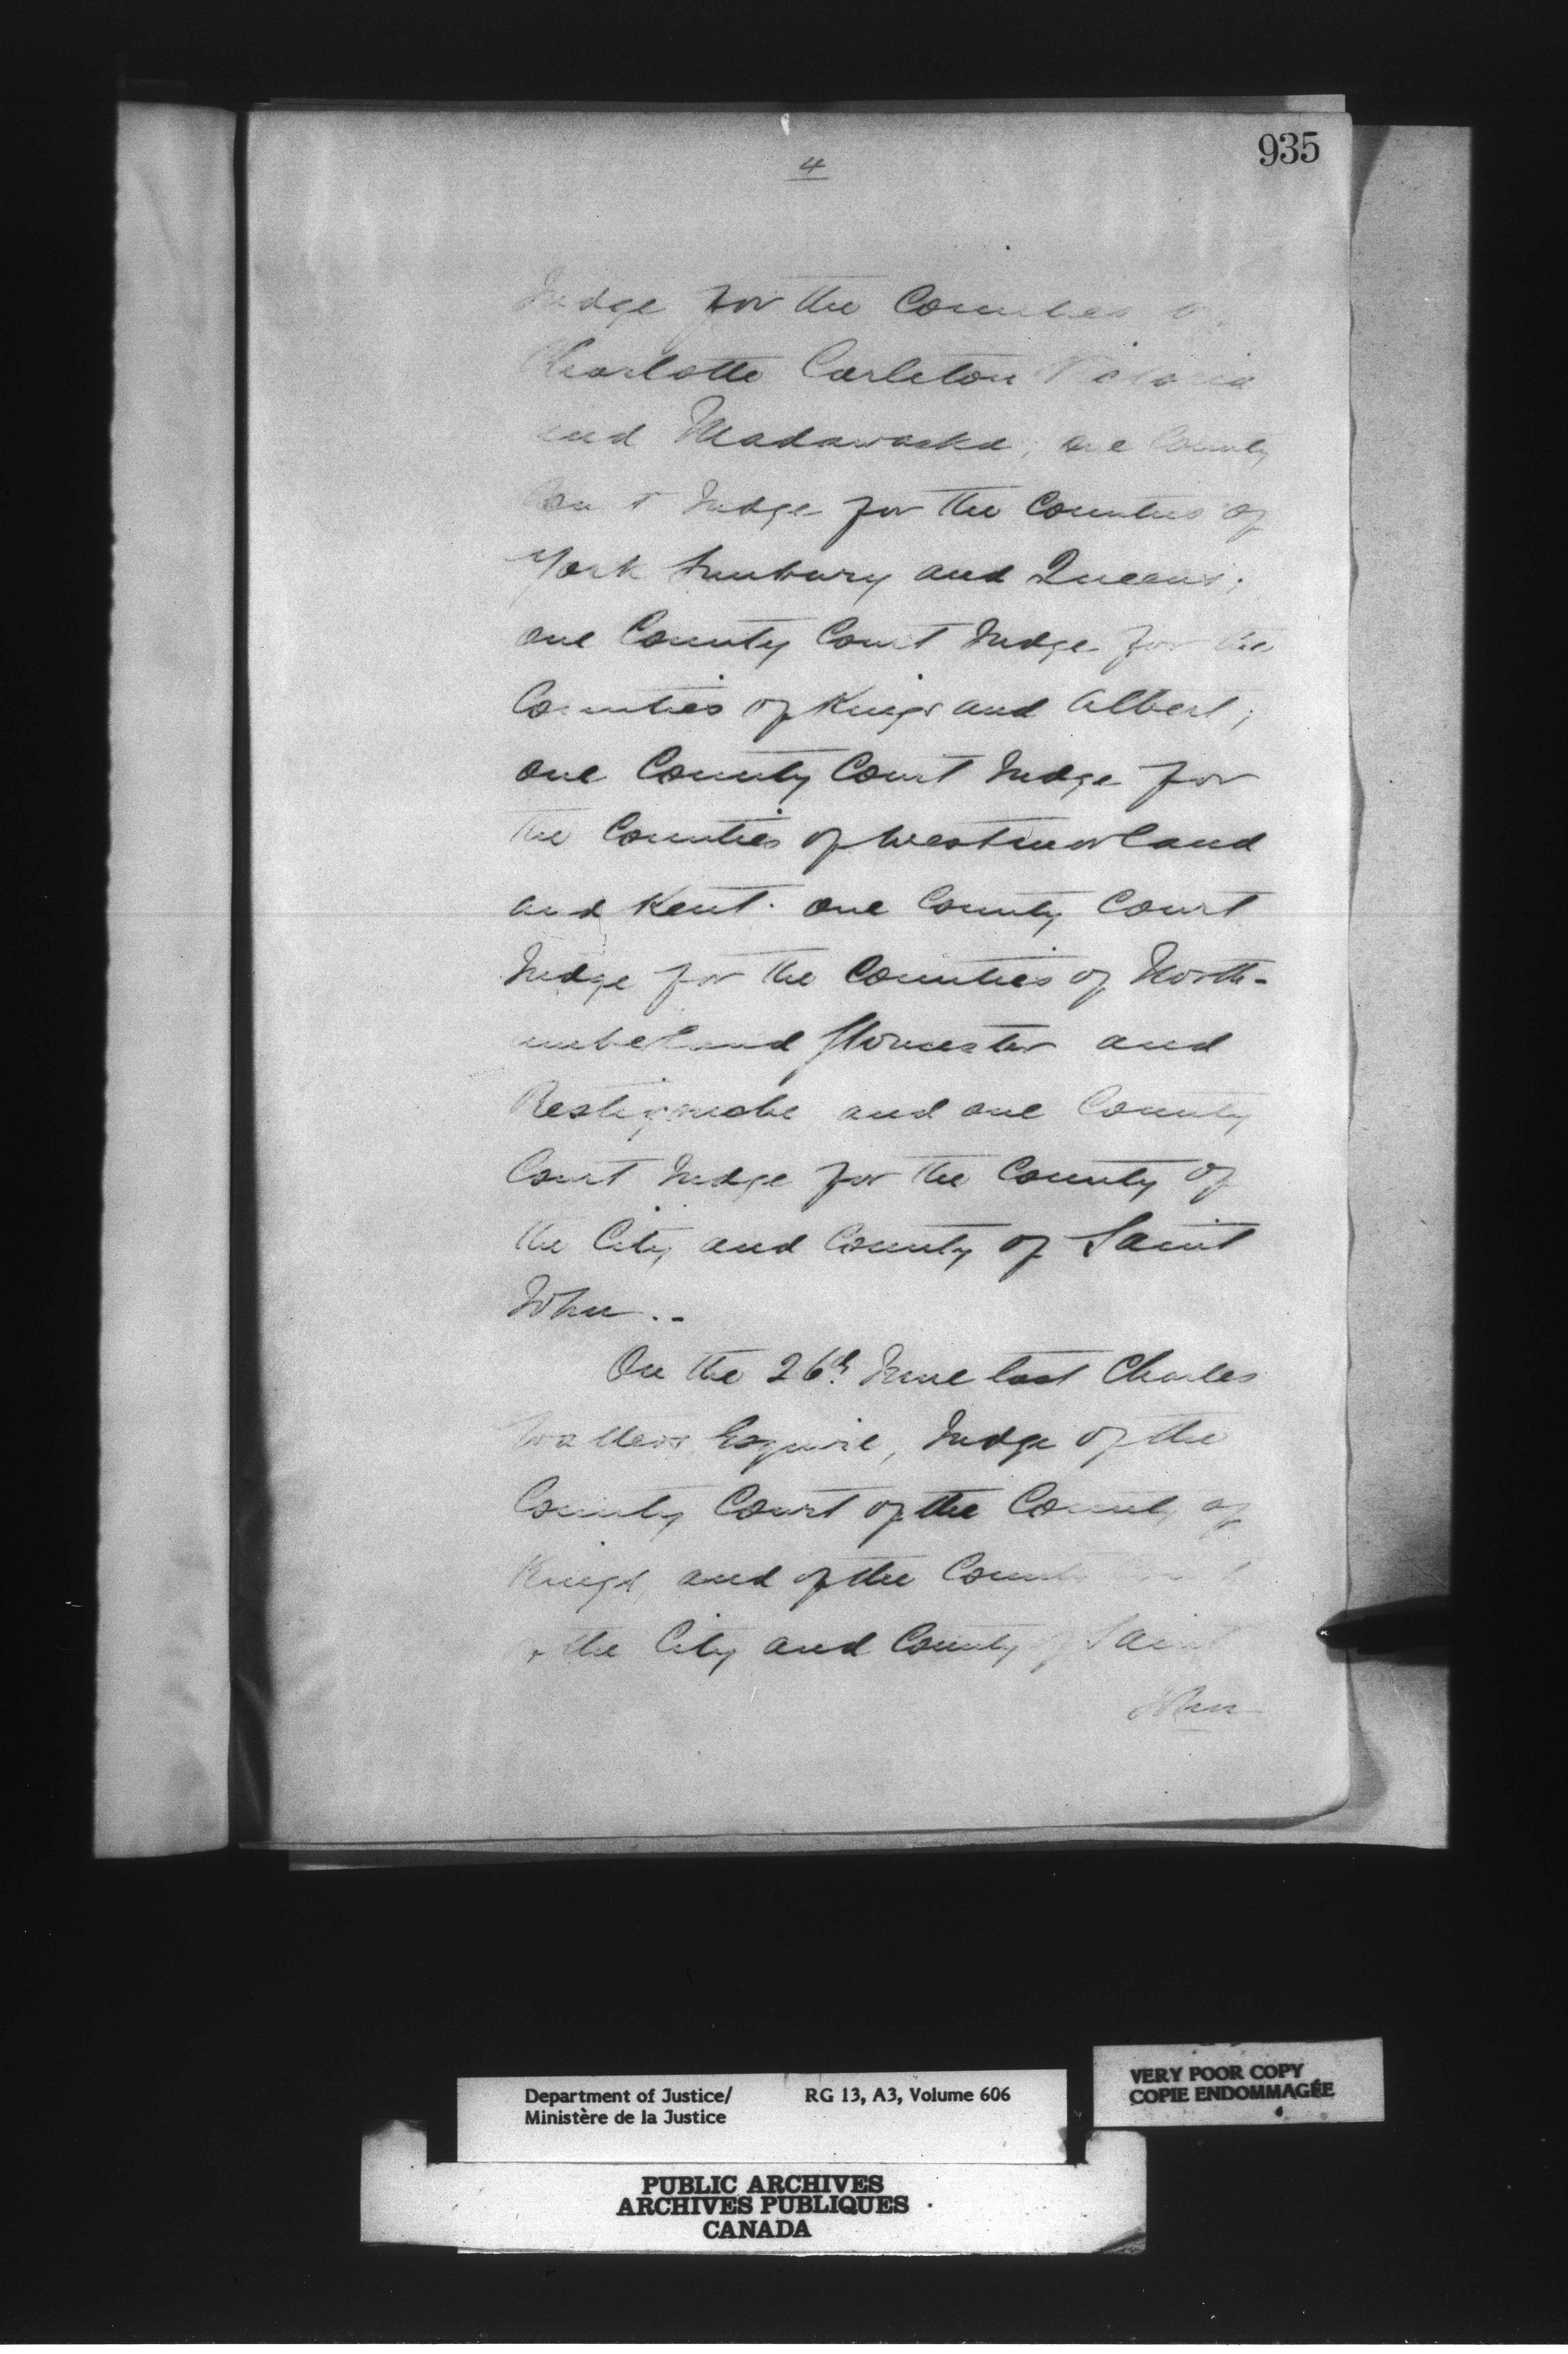 4
935
Judge for the Counties of
Charlotte Carleton Victoria
and Madawaska; one County
Court Judge for the Counties of
York Sunbury and Queens;
one County Court Judge for the
Counties of Kings and Albert;
one County Court Judge for
the Counties of Westmorland
and Kent. one County Court
Judge for the Counties of North-
umberland Gloucester and
Restigouche and one County
Court Judge for the County of
the City and County of Saint
John..
On the 26th June last Charles
Watters Esquire, Judge of the
County Court of the County of
Kings, and of the County Court
the City and County of Saint
John
Department of Justice/
Ministère de la Justice
RG 13, A3, Volume 606
VERY POOR COPY
COPIE ENDOMMAGÉE
PUBLIC ARCHIVES
ARCHIVES PUBLIQUES
CANADA